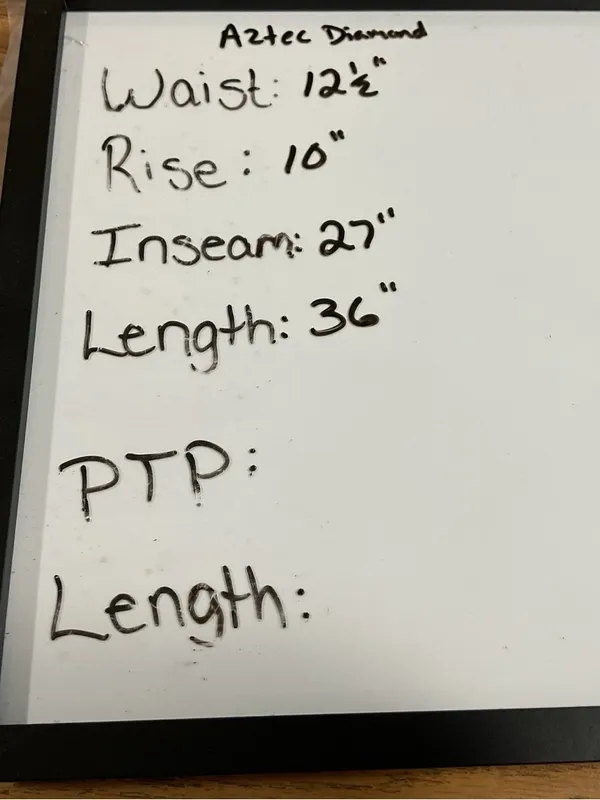 Aztec Diamond
Waist: 12½"
Rise: 10"
Inseam: 27"
Length: 36"
PTP:
Length: